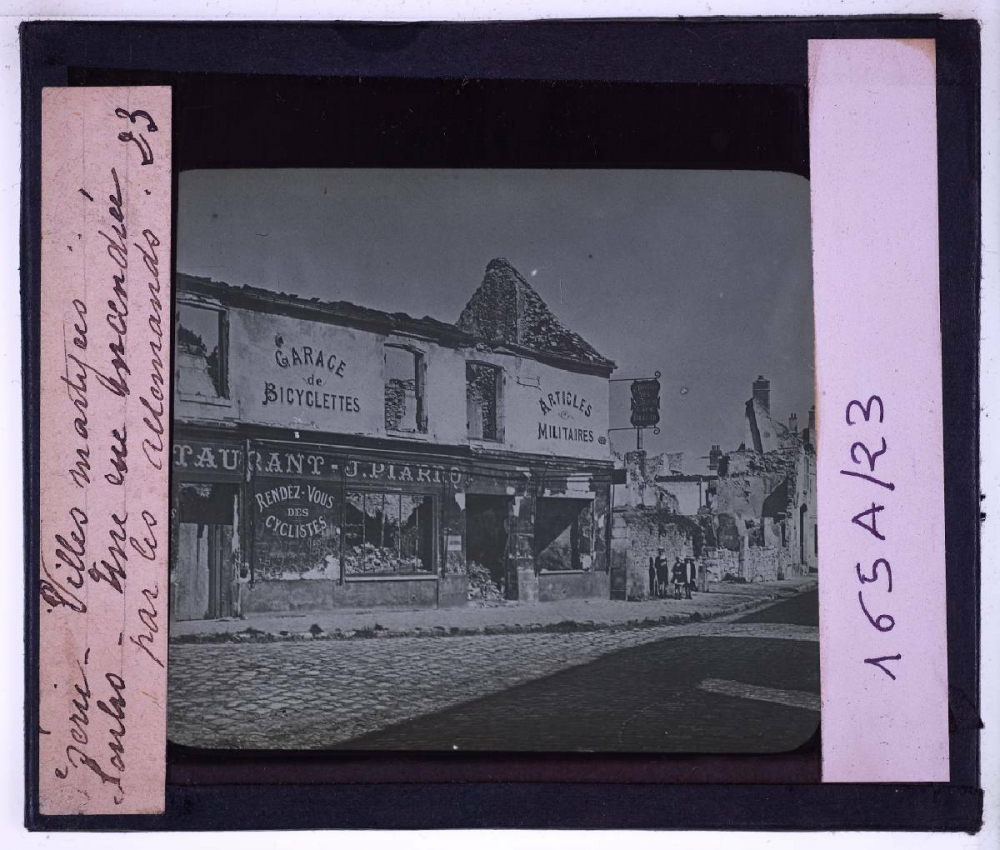 Série - Villes martyres
Senlis - Une rue incendiée
par les Allemands. 23
GARAGE
de
BICYCLETTES
ARTICLES
MILITAIRES
TAURANT - J. PIARD
RENDEZ-VOUS
DES
CYCLISTES
165A/23